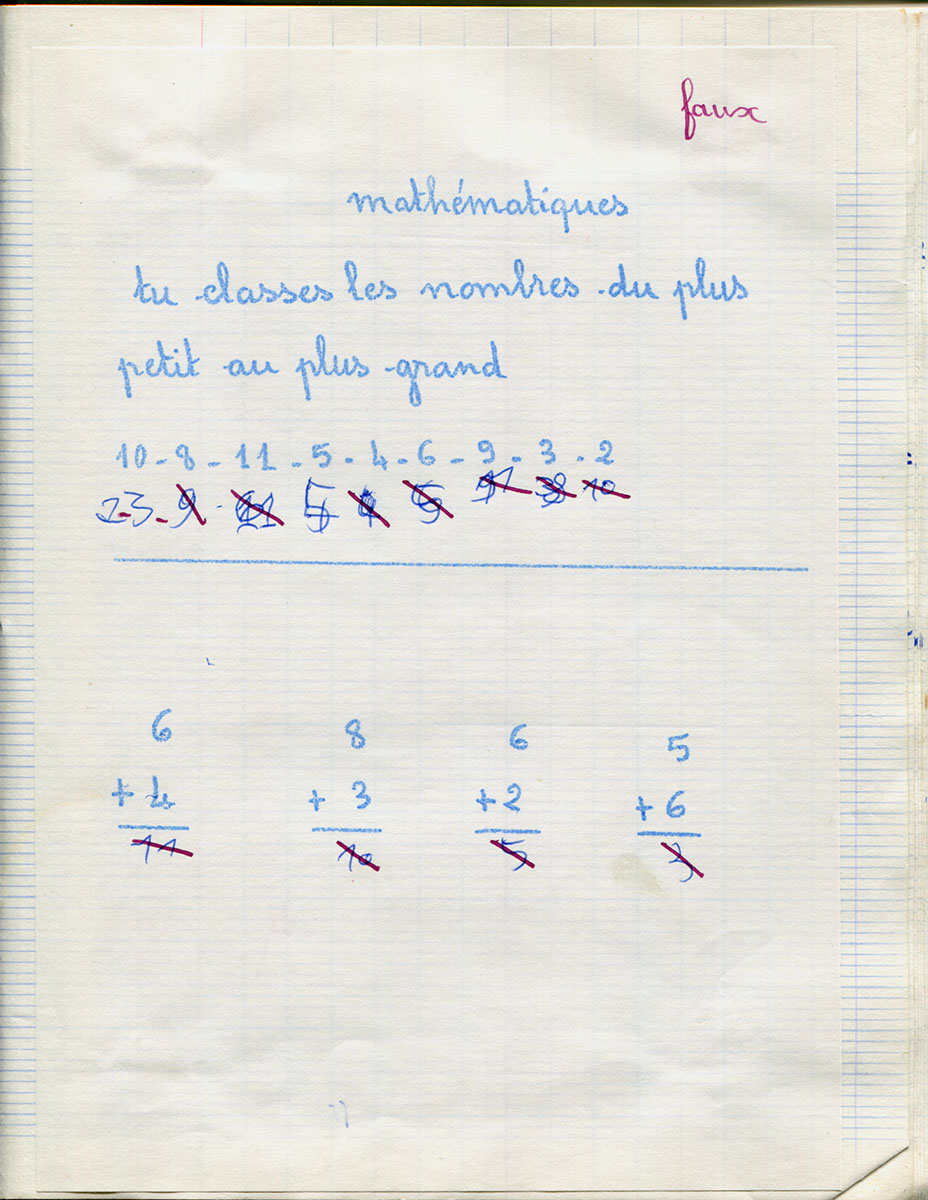 faux
mathématiques
tu classes les nombres du plus
petit au plus grand
10 - 8 - 11 - 5 - 4 - 6 - 9 - 3 - 2
2 - 3 - 9 - 5 11 10
6 8 6 5
+ 4 + 3 + 2 + 6
11 10 5 3